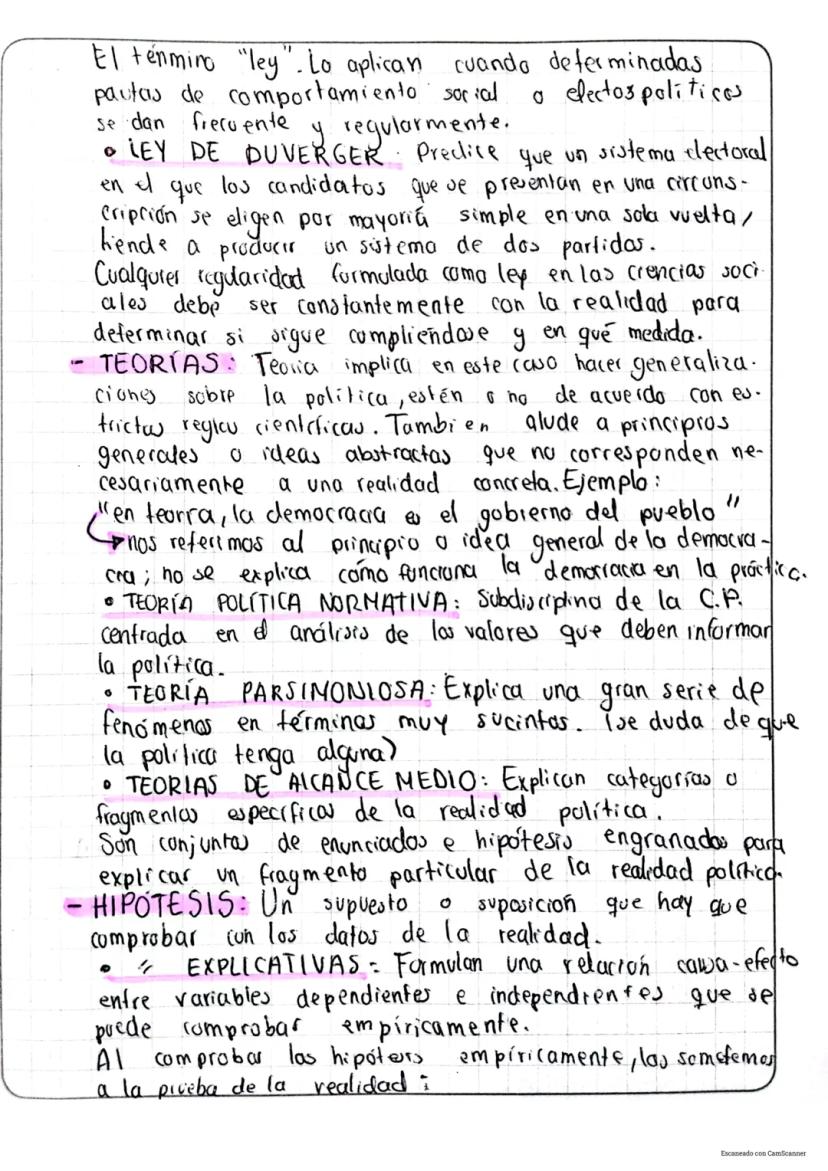 El término "ley". Lo aplican cuando determinadas
pautas de comportamiento social o efectos políticos
se dan frecuente y regularmente.
• LEY DE DUVERGER. Predice que un sistema electoral
en el que los candidatos que se presentan en una circuns-
cripción se eligen por mayoría simple en una sola vuelta,
tiende a producir un sistema de dos partidos.
Cualquier regularidad formulada como ley en las ciencias soci-
ales debe ser constantemente con la realidad para
determinar si sigue cumpliéndose y en qué medida.
- TEORÍAS: Teoría implica en este caso hacer generaliza-
ciones sobre la política, estén o no de acuerdo con es-
trictas reglas científicas. Tambien alude a principios
generales o ideas abstractas que no corresponden ne-
cesariamente a una realidad concreta. Ejemplo:
"en teoría, la democracia es el gobierno del pueblo"
nos referimos al principio o idea general de la democra-
cia; no se explica cómo funciona la democracia en la práctic.
• TEORÍA POLÍTICA NORMATIVA: Subdisciplina de la C.P.
centrada en el análisis de los valores que deben informar
la política.
• TEORÍA PARSIMONIOSA: Explica una gran serie de
fenómenos en términos muy sucintos. (se duda de que
la política tenga alguna)
• TEORIAS DE ALCANCE MEDIO: Explican categorías o
fragmentos específicos de la realidad política.
Son conjuntos de enunciados e hipótesis engranados para
explicar un fragmento particular de la realidad política.
- HIPÓTESIS: Un supuesto o suposición que hay que
comprobar con los datos de la realidad.
• " EXPLICATIVAS = Formulan una relación causa-efecto
entre variables dependientes e independientes que se
puede comprobar empíricamente.
Al comprobar las hipótesis empíricamente, las sometemos
a la prueba de la realidad:
Escaneado con CamScanner